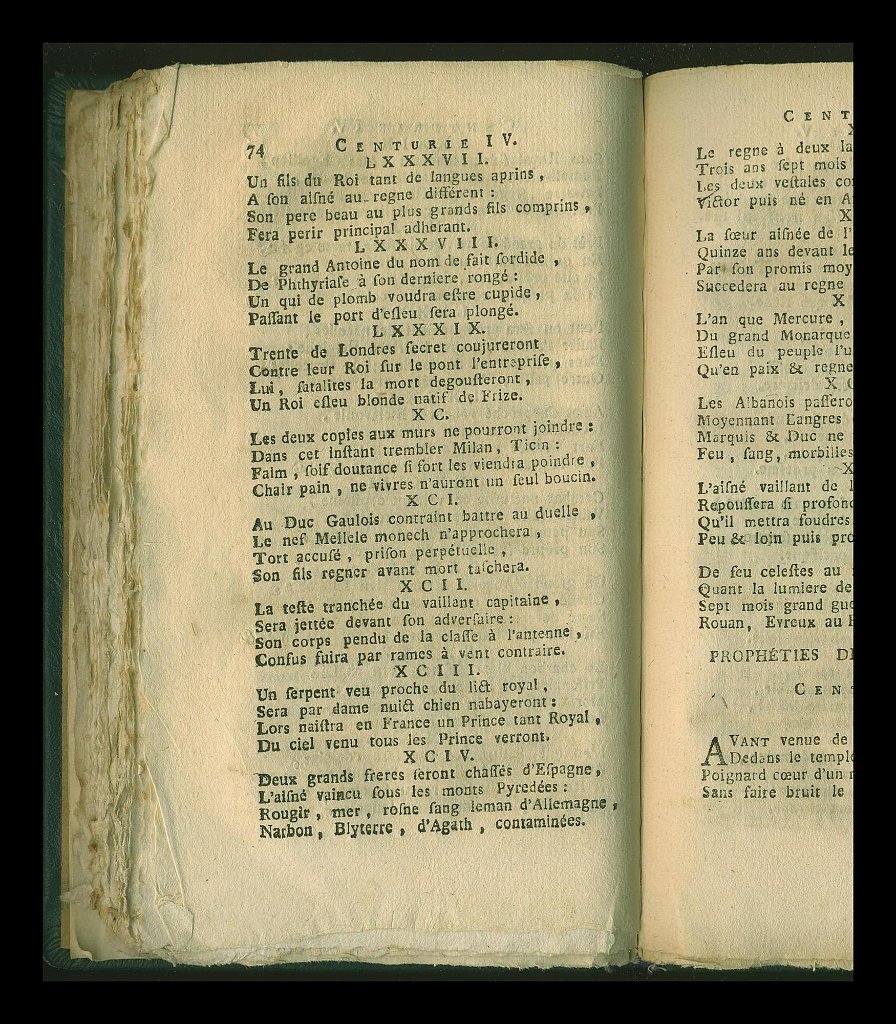 74 CENTURIE IV.
LXXXVII.
Un fils du Roi tant de langues aprins,
A ſon aiſné au regne différent :
Son pere beau au plus grands fils comprins,
Fera perir principal adherant.
LXXXVIII.
Le grand Antoine du nom de fait ſordide,
De Phthyriaſe à ſon derniere rongé :
Un qui de plomb voudra eſtre cupide,
Paſſant le port d'eſleu ſera plongé.
LXXXIX.
Trente de Londres ſecret coujureront
Contre leur Roi ſur le pont l'entrepriſe,
Lui, ſatalites la mort degouſteront,
Un Roi eſleu blonde natif de Frize.
XC.
Les deux copies aux murs ne pourront joindre :
Dans cet inſtant trembler Milan, Ticin :
Faim, ſoif doutance ſi fort les viendra poindre,
Chair pain, ne vivres n'auront un ſeul boucin.
XCI.
Au Duc Gaulois contraint battre au duelle,
Le nef Mellele monech n'approchera,
Tort accuſé, priſon perpétuelle,
Son fils regner avant mort taſchera.
XCII.
La teſte tranchée du vaillant capitaine,
Sera jettée devant ſon adverſaire :
Son corps pendu de la claſſe à l'antenne,
Confus fuira par rames à vent contraire.
XCIII.
Un ſerpent veu proche du lict royal,
Sera par dame nuict chien nabayeront :
Lors naiſtra en France un Prince tant Royal,
Du ciel venu tous les Prince verront.
XCIV.
Deux grands freres ſeront chaſſés d'Eſpagne,
L'aiſné vaincu ſous les monts Pyredées :
Rougir, mer, roſne ſang leman d'Allemagne,
Narbon, Blyterre, d'Agath, contaminées.
CENT
X
Le regne à deux la
Trois ans ſept mois
Les deux veſtales co
Victor puis né en A
X
La ſœur aiſnée de l'
Quinze ans devant le
Par ſon promis moy
Succedera au regne
X
L'an que Mercure,
Du grand Monarque
Eſleu du peuple l'u
Qu'en paix & regne
XC
Les Albanois paſſero
Moyennant Langres
Marquis & Duc ne
Feu, ſang, morbilles
X
L'aiſné vaillant de l
Repouſſera ſi profond
Qu'il mettra foudres
Peu & loin puis pro
De feu celeſtes au
Quant la lumiere de
Sept mois grand gue
Rouan, Evreux au
PROPHÉTIES D
CENT
AVANT venue de
Dedans le temple
Poignard cœur d'un
Sans faire bruit le